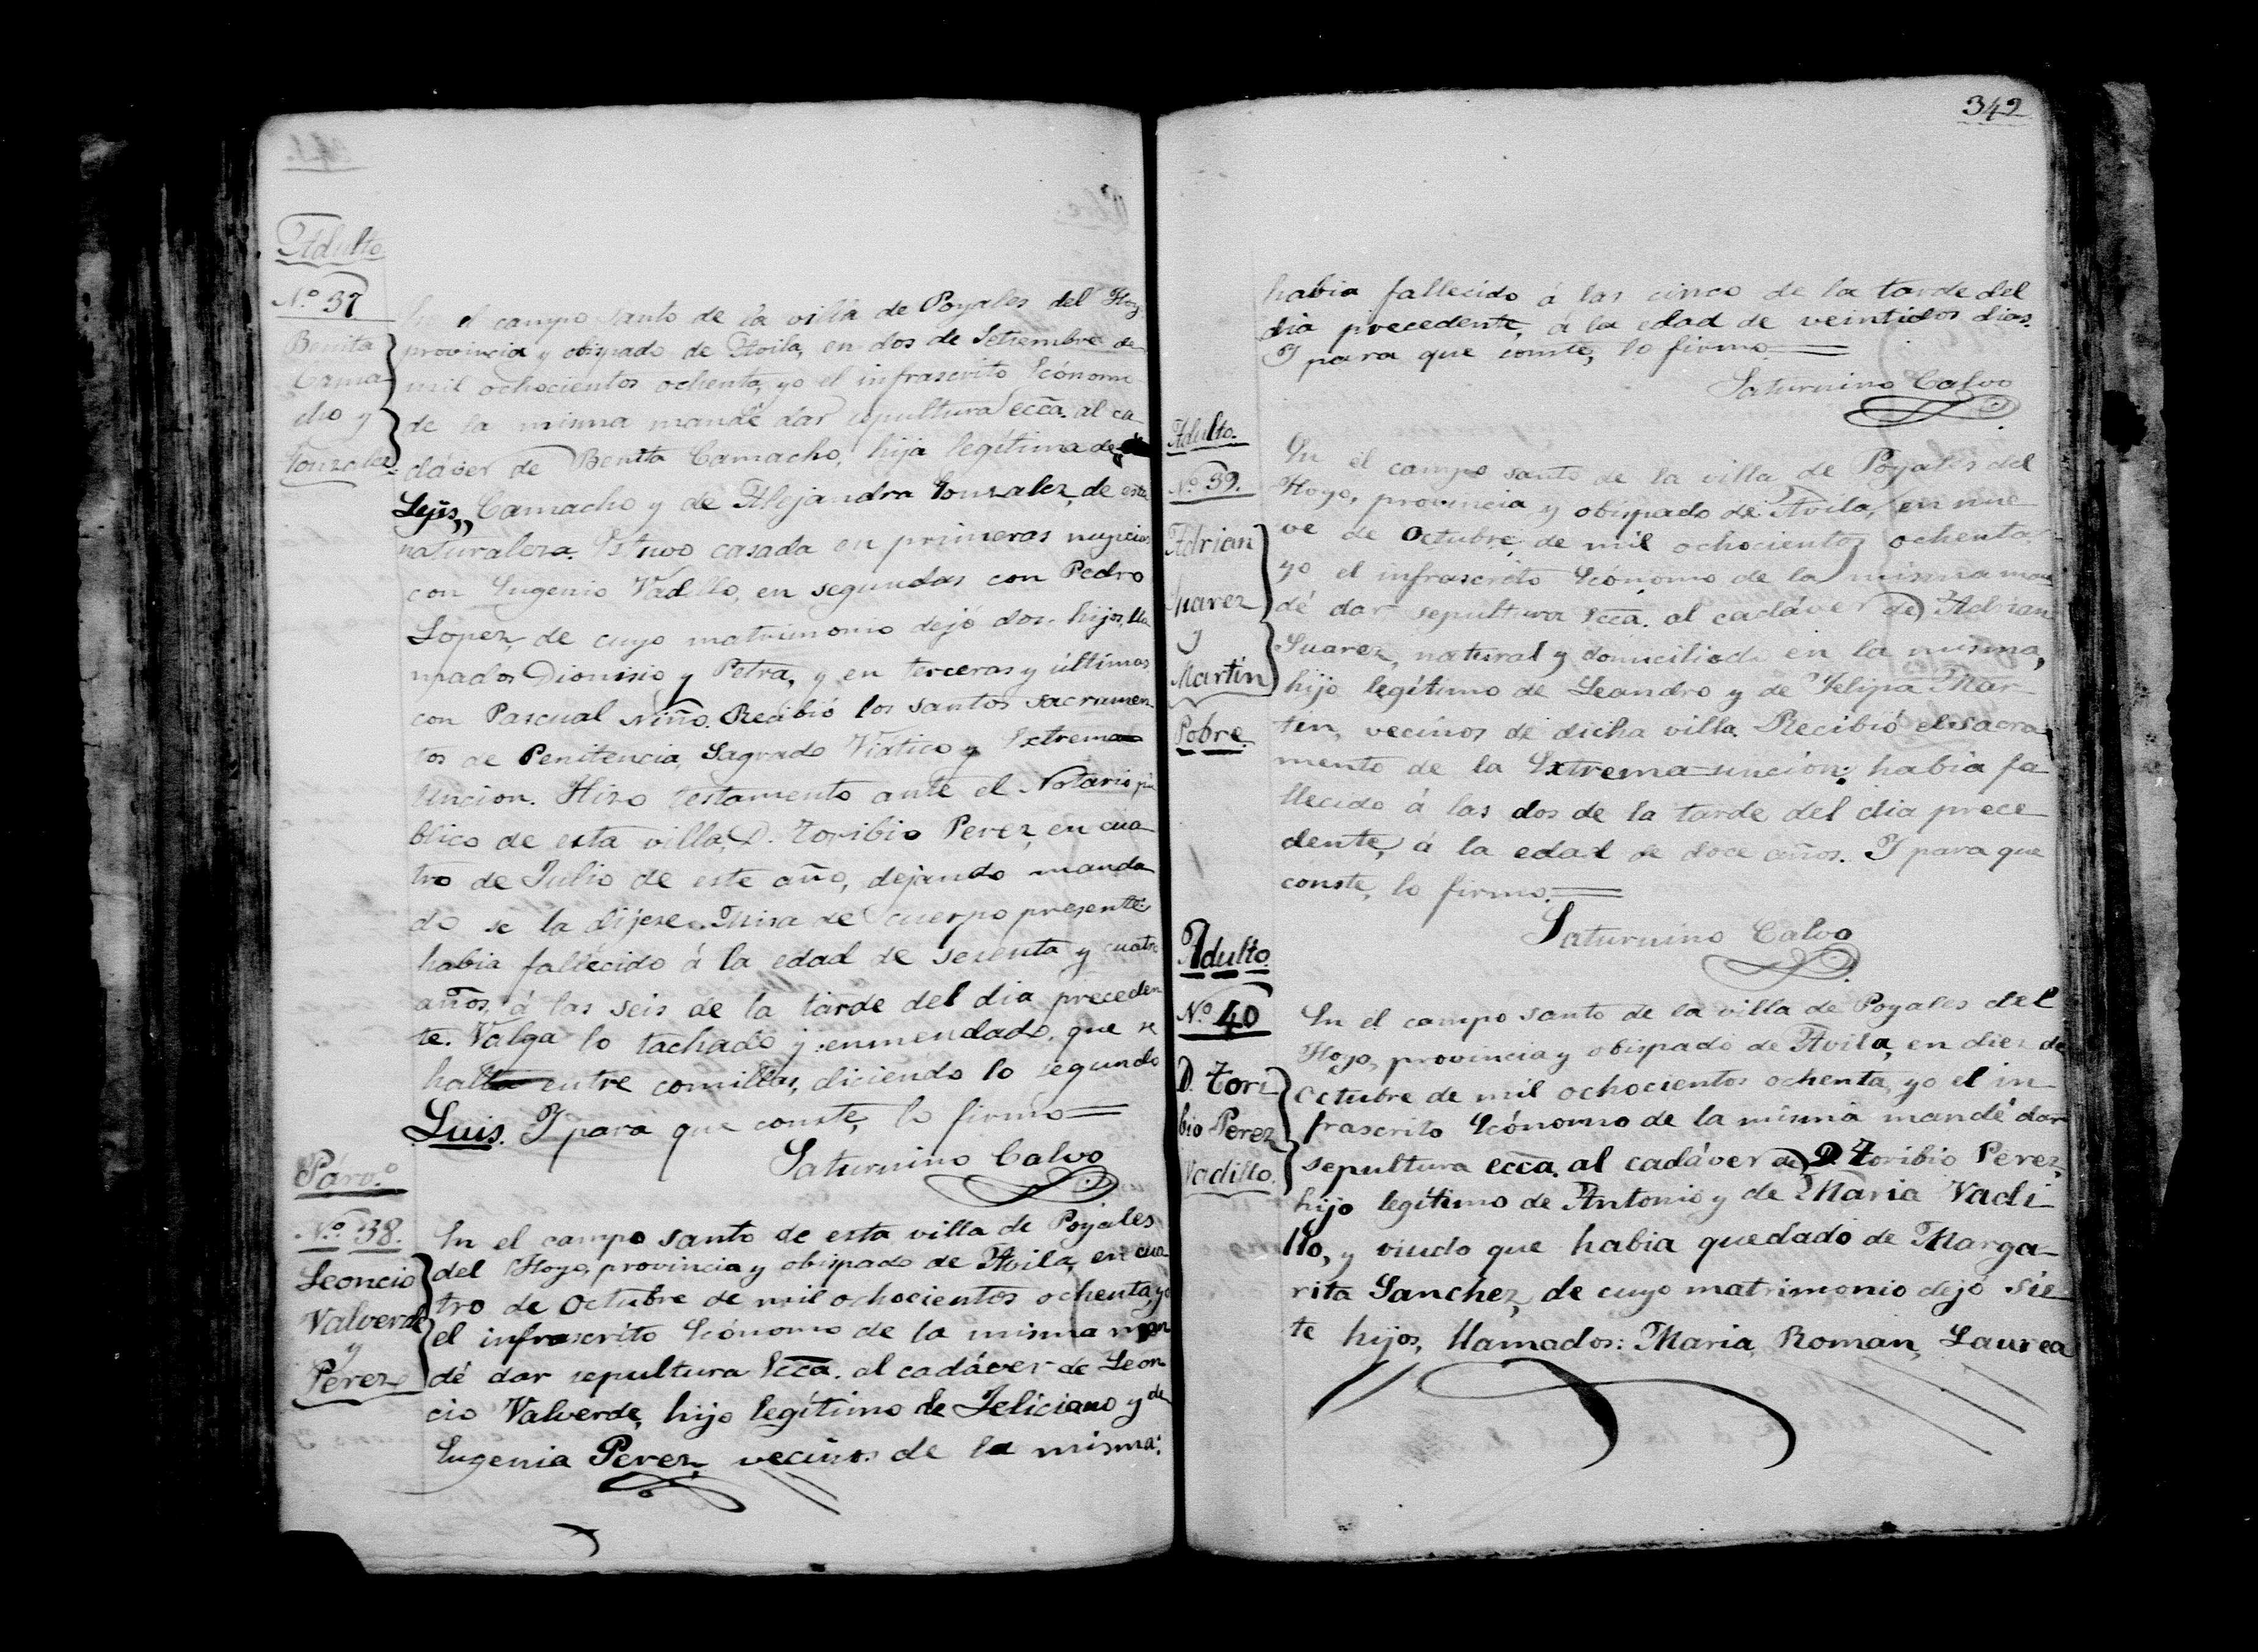 Adulto
N.º 37
Benita
Cama-
cho y
Gonzalez
En el campo santo de la villa de Poyales del Hoyo
provincia y obispado de Avila, en dos de Setiembre de
mil ochocientos ochenta, yo el infrascrito Ecónomo
de la misma mandé dar sepultura ecca. al ca-
dáver de Benita Camacho, hija legítima de
Lujis,, Camacho y de Alejandra Gonzalez, de esta
naturaleza. Estuvo casada en primeras nupcias
con Eugenio Vadillo, en segundas con Pedro
Lopez, de cuyo matrimonio dejó dos hijos, lla-
mados Dionisio y Petra, y en terceras y últimas
con Pascual Niño. Recibió los santos sacramen-
tos de Penitencia, Sagrado Viático y Extrema
Uncion. Hizo testamento ante el Notario pú-
blico de esta villa, D. Toribio Perez, en cua-
tro de Julio de este año, dejando manda-
do se la dijese Misa de cuerpo presente:
habia fallecido á la edad de sesenta y cuatro
años, á las seis de la tarde del dia preceden-
te. Valga lo tachado y enmendado, que se
halla entre comillas, diciendo lo segundo
Luis. Y para que conste, lo firmo
Saturnino Calvo
Párv.º
N.º 38.
Leoncio
Valverde
y
Perez
En el campo santo de esta villa de Poyales
del Hoyo, provincia y obispado de Avila, en cua-
tro de Octubre de mil ochocientos ochenta, yo
el infrascrito Ecónomo de la misma man-
dé dar sepultura Ecca. al cadáver de Leon-
cio Valverde, hijo legítimo de Feliciano y de
Eugenia Perez, vecinos de la misma:
342
habia fallecido á las cinco de la tarde del
dia precedente, á la edad de veintidos dias.
Y para que conste, lo firmo
Saturnino Calvo
Adulto.
N.º 39.
Adrian
Suarez
y
Martin
Pobre.
En el campo santo de la villa de Poyales del
Hoyo, provincia y obispado de Avila, en nue-
ve de Octubre de mil ochocientos ochenta
yo el infrascrito Ecónomo de la misma man-
dé dar sepultura Ecca. al cadáver de Adrian
Suarez, natural y domiciliado en la misma,
hijo legítimo de Leandro y de Felipa Mar-
tin, vecinos de dicha villa. Recibió el sacra-
mento de la Extrema-uncion: habia fa-
llecido á las dos de la tarde del dia prece-
dente, á la edad de doce años. Y para que
conste, lo firmo.
Saturnino Calvo
Adulto.
N.º 40
D. Tori
bio Perez
Vadillo.
En el campo santo de la villa de Poyales del
Hoyo, provincia y obispado de Avila, en diez de
Octubre de mil ochocientos ochenta, yo el in-
frascrito Ecónomo de la misma mandé dar
sepultura ecca. al cadáver de D. Toribio Perez,
hijo legítimo de Antonio y de Maria Vadi-
llo, y viudo que habia quedado de Marga-
rita Sanchez, de cuyo matrimonio dejó sie-
te hijos, llamados: Maria, Roman, Laurea